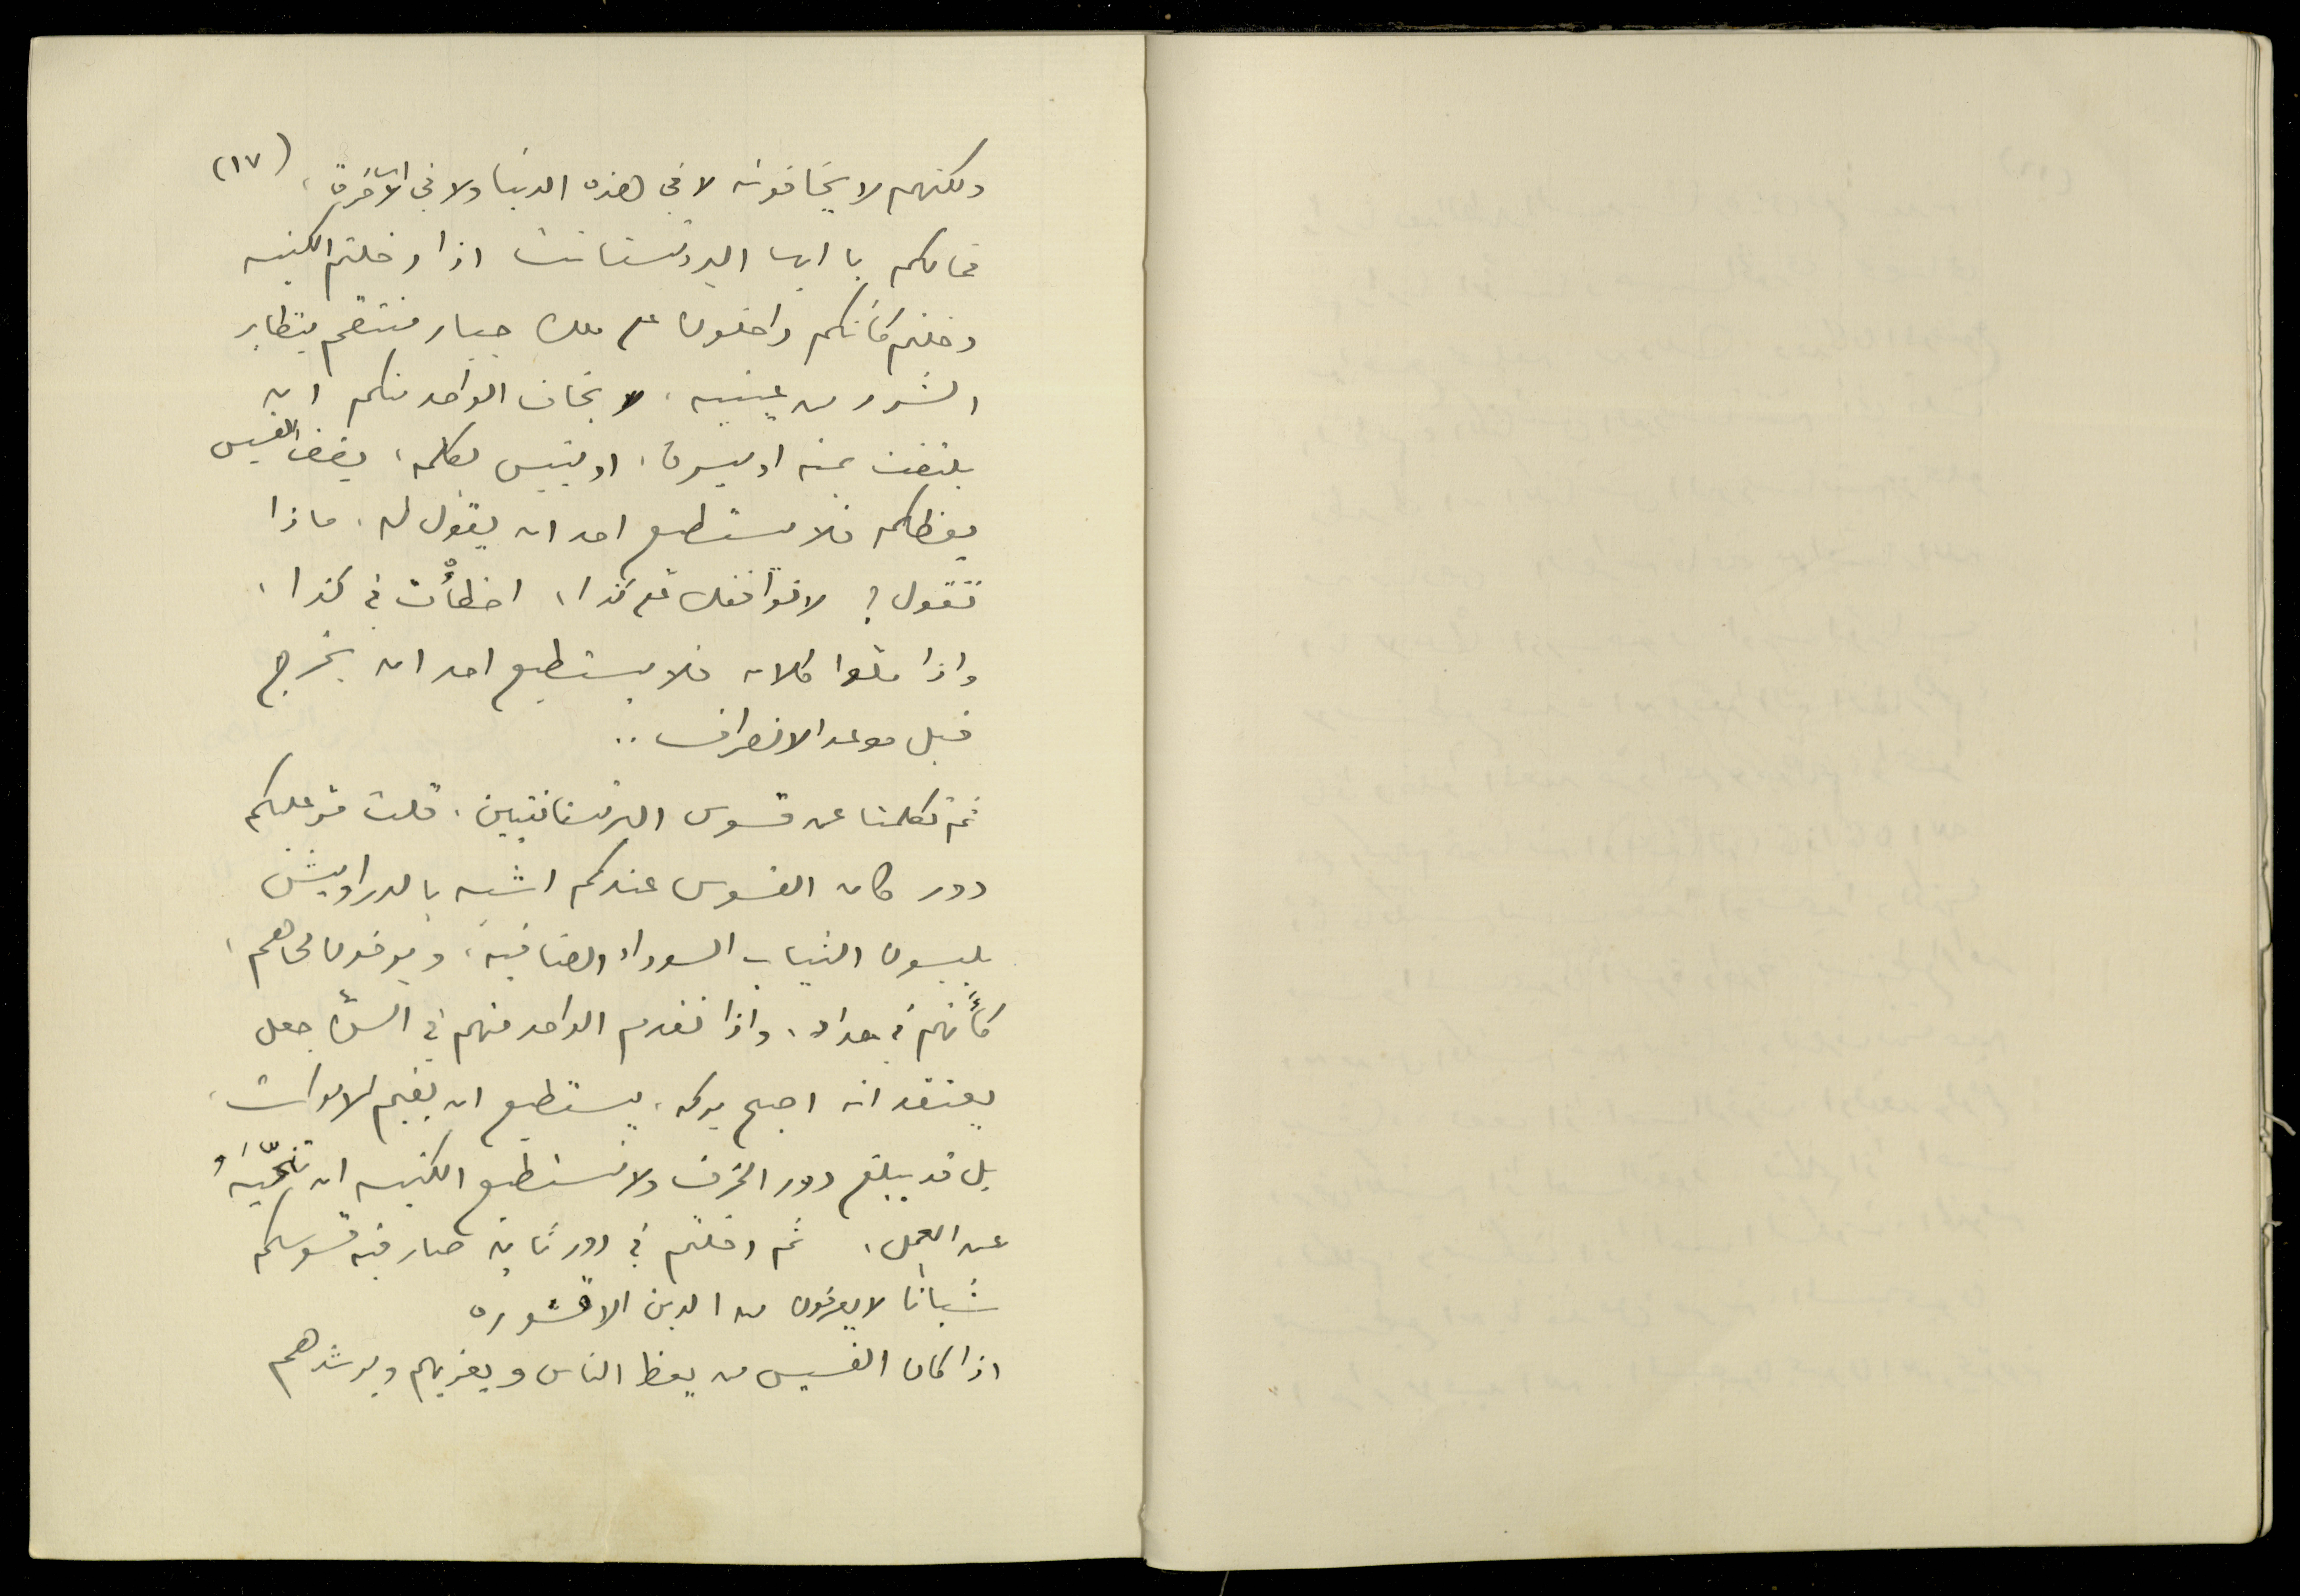 (١٧)
ولكنهم لا يخافونه لا في هذه الدنيا ولا في الآخرة،
فمالكم يا ايها البروتستانت اذا دخلتم الكنيسه
دخلتم كأنكم داخلون على ملك جبار منتقم يتطاير
الشرر من عينيه، لا يخاف الواحد منكم ان
يلتفت يمنه او يسرة، او ينبس بكلمه، يقف القسيس
يعظكم فلا يستطيع احد ان يقول له، ماذا
تقول؟ لا نوافقك على كذا، اخطأْت في كذا،
واذا ملوا كلامه فلا يستطيع احد ان يخرج
قبل موعد الانصراف..
ثم تكلمنا عن قسوس البرتستانتيين، قلت مر عليكم
دور كان القسوس عندكم اشبه بالدراويش
يلبسون الثياب السوداء الضافية، ويرخون لحاهم،
كأنهم في حداد، واذا تقدم الواحد منهم في السنّ جعل
يعتقد انه اصبح بركه، يستطيع ان يقيم الاموات،
بل قد يبلغ دور الخرف ولا تستطيع الكنيسه ان تنحّيَهُ
عن العمل، ثم دخلتم في دور ثانٍ صار فيه قسوسكم
شبانًا لا يعرفون من الدين الا قشوره
اذا كان القسيس من يعظ الناس ويعزيهم ويرشدهم